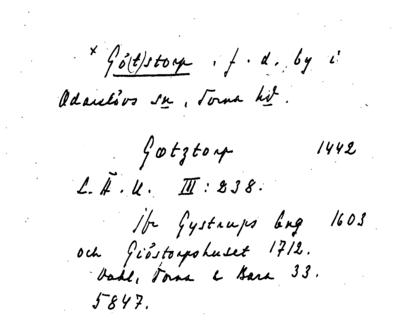 × Gö(t)storp, f. d. by i
Odarslövs sn, Torna hd.
Gøtztorp 1442
L. Ä. U. III: 238.
Jfr Gystrups eng 1603
och Giöstorpshuset 1712.
Dahl, Torna o Bara 33.
5847.